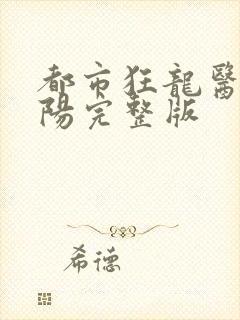 都市狂龍醫
陽完整版
希德